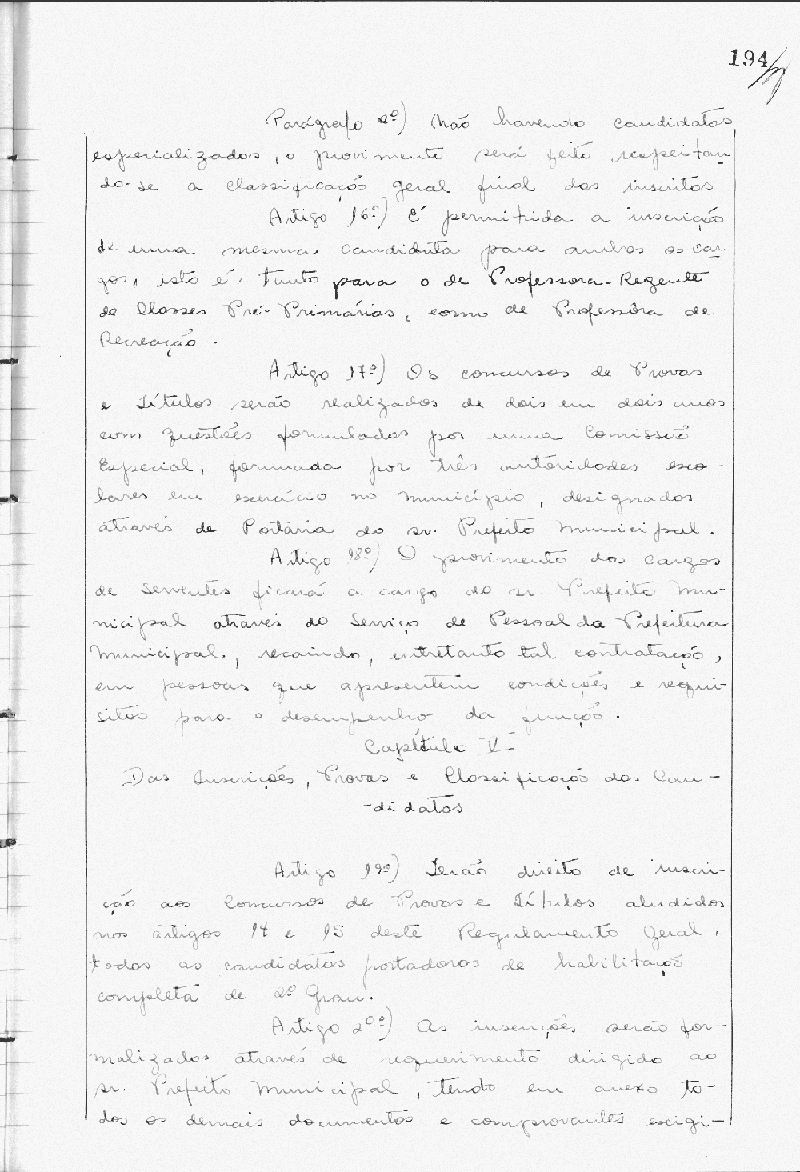 194
Parágrafo 2º) Não havendo candidatas
especializadas, o provimento será feito respeitan
do-se a classificação geral final dos inscritos
Artigo 16º) É permitida a inscrição
de uma mesma candidata para ambos os car
gos, isto é, tanto para o de Professora-Regente
de Classes Pré-Primárias, como de Professôra de
Recreação.
Artigo 17º) Os concursos de Provas
e Títulos serão realizados de dois em dois anos
com questões formuladas por uma Comissão
Especial, formada por três autoridades esco-
lares em exercício no município, designados
através de Portaria do sr. Prefeito Municipal.
Artigo 18º) O provimento dos cargos
de Serventes ficará a cargo do sr Prefeito Mu-
nicipal através do Serviço de Pessoal da Prefeitura
Municipal, recaindo, entretanto tal contratação,
em pessoas que apresentem condições e requi-
sitos para o desempenho da função.
Capítulo V-
Das Inscrições, Provas e Classificação dos Can-
-didatos
Artigo 19º) Terão direito de inscri-
ção aos Concursos de Provas e Títulos aludidos
nos artigos 14 e 15 deste Regulamento Geral,
todas as candidatas portadoras de habilitação
completa de 2º Grau.
Artigo 20º) As inscrições serão for-
malizadas através de requerimento dirigido ao
sr. Prefeito Municipal, tendo em anexo to-
dos os demais documentos e comprovantes exigi-